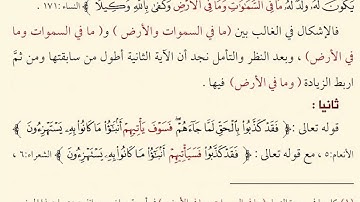 يَكُونَ لَهُۥ وَلَدٌ لَّهُۥ مَا فِي السَّمَٰوَٰتِ وَمَا فِي الْأَرْضِ وَكَفَىٰ بِاللَّهِ وَكِيلًا ﴾ النساء: ١٧١ .
فالإشكال في الغالب بين (ما في السموات والأرض) و( ما في السموات وما
في الأرض) ، وبعد النظر والتأمل نجد أن الآية الثانية أطول من سابقتها ومن ثمَّ
اربط الزيادة ( وما في الأرض) فيها .
ثانيا :
قوله تعالى :﴿ فَقَدْ كَذَّبُوا بِالْحَقِّ لَمَّا جَاءَهُمْ فَسَوْفَ يَأْتِيهِمْ أَنۢبَٰٓؤُا مَا كَانُوا بِهِۦ يَسْتَهْزِءُونَ ﴾
الأنعام: ٥ ، مع قوله تعالى :﴿ فَقَدْ كَذَّبُوا فَسَيَأْتِيهِمْ أَنۢبَٰٓؤُا مَا كَانُوا بِهِۦ يَسْتَهْزِءُونَ ﴾ الشعراء: ٦ ،